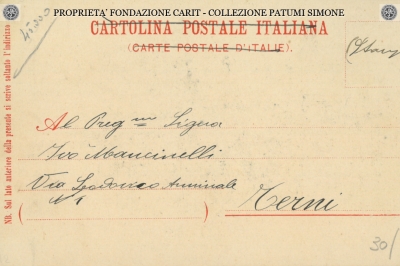 PROPRIETA' FONDAZIONE CARIT - COLLEZIONE PATUMI SIMONE
CARTOLINA POSTALE ITALIANA
(CARTE POSTALE D'ITALIE).
NB. Sul lato anteriore della presente si scrive soltanto l'indirizzo
Al Preg mo Signor
Ivo Mancinelli
Via
N 1
Terni
30/